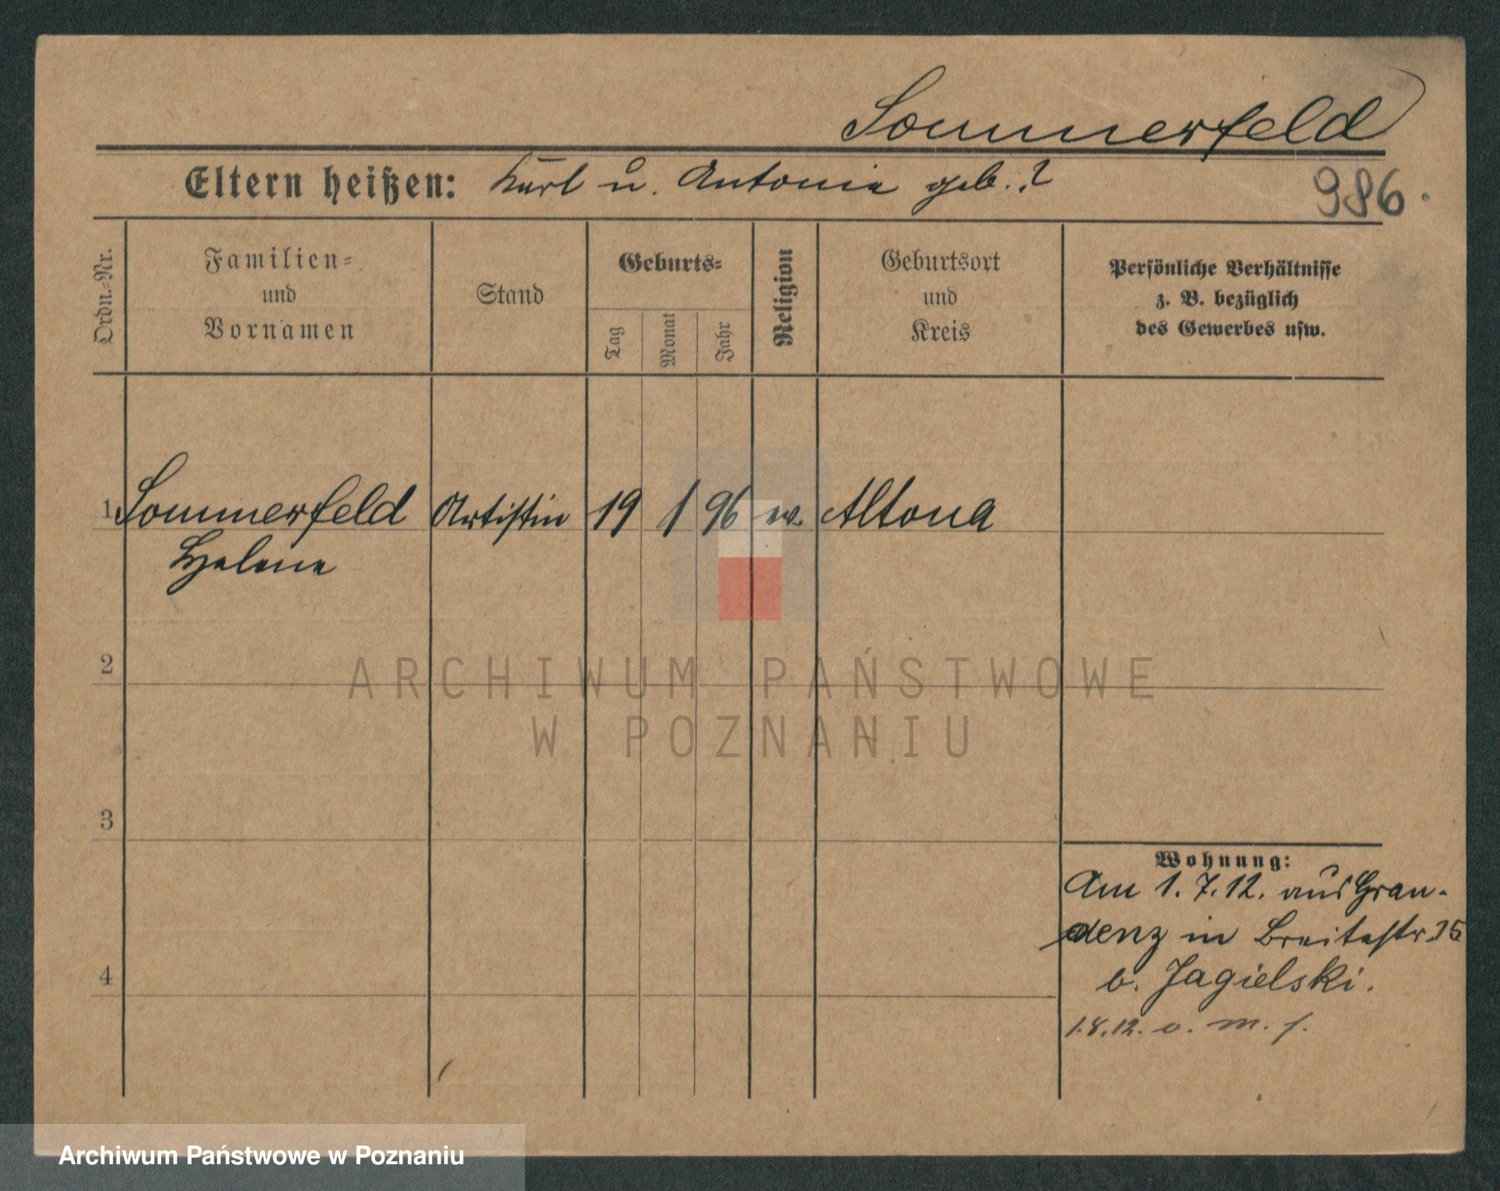 Sommerfeld
Eltern heißen: Karl u. Antonie geb. ?
986.
Ordn.-Nr.
Familien-
und
Vornamen
Stand
Geburts-
Tag
Monat
Jahr
Religion
Geburtsort
und
Kreis
Persönliche Verhältnisse
z. B. bezüglich
des Gewerbes usw.
1 Sommerfeld Artistin 19 1 96 Altona
Helene
2
ARCHIWUM PAŃSTWOWE
W POZNANIU
3
Wohnung:
Am 1.7.12. aus Grau-
denz in Breitestr 35
b. Jagielski.
4
1.8.12. o. m. f.
Archiwum Państwowe w Poznaniu